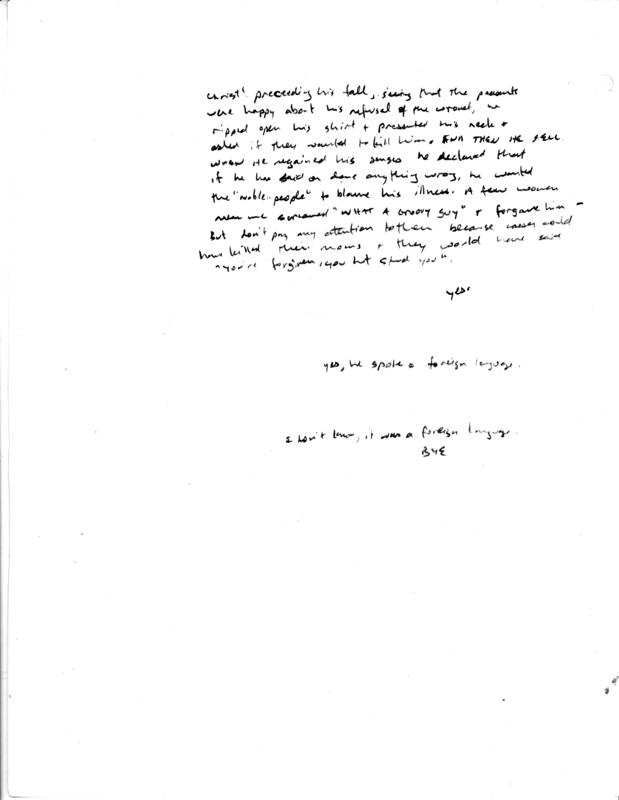 Christ! preceeding his fall, seeing that the peasants
were happy about his refusal of the crown, he
ripped open his shirt + presented his neck +
asked if they wanted to kill him. AND THEN HE FELL.
WHEN HE regained his senses he declared that
if he has said or done anything wrong, he wanted
the "noble people" to blame his illness. A few women
near me screamed "WHAT A GROOVY GUY" + forgave him -
But don't pay any attention to them because caesar could
have killed their moms + they would have said
"you're forgiven, you hot stud you".
yes.
yes, he spoke a foreign language.
I don't know, it was a foreign language.
BYE